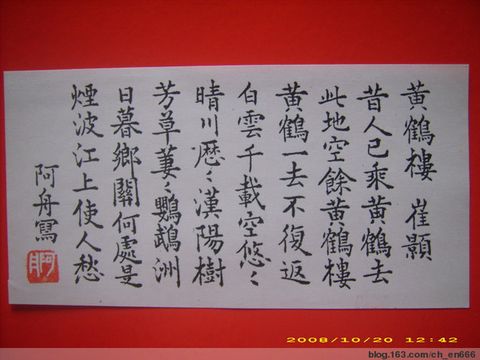 黃鶴樓 崔顥
昔人已乘黃鶴去
此地空餘黃鶴樓
黃鶴一去不復返
白雲千載空悠〻
晴川歷〻漢陽樹
芳草萋〻鸚鵡洲
日暮鄉關何處是
煙波江上使人愁
阿丹寫
2008/10/20 12:42
blog.163.com/ch_en666